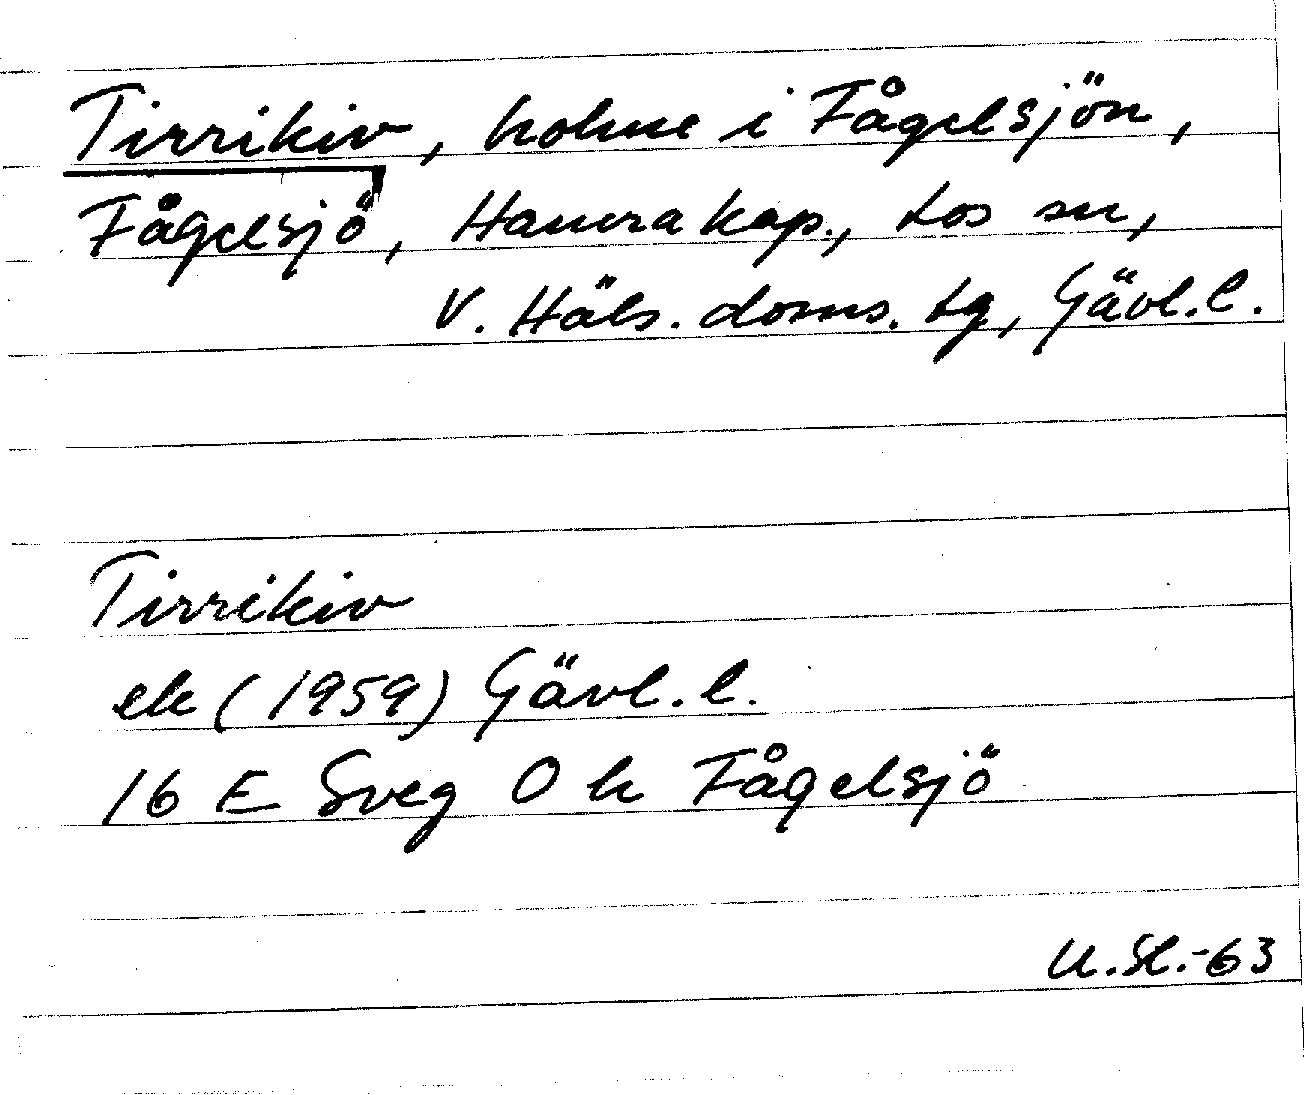 Tirrikiv, holme i Fågelsjön,
Fågelsjö, Hamra kap., Los sn,
V. Häls. doms. tg, Gävl. l.
Tirrikiv
ek (1959) Gävl. l.
16 E Sveg O h Fågelsjö
U. Sl. -63